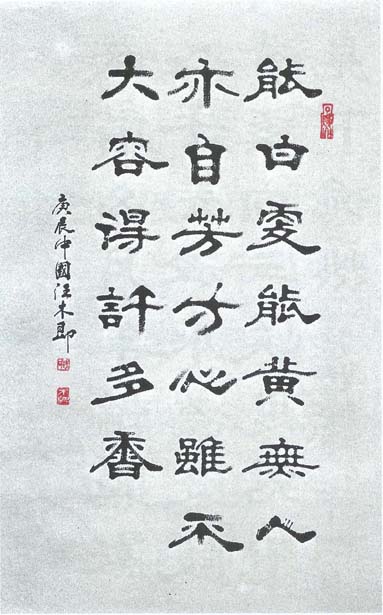 能白更能黄無人
亦自芳寸心雖不
大容得許多香
庚辰中國汪木即